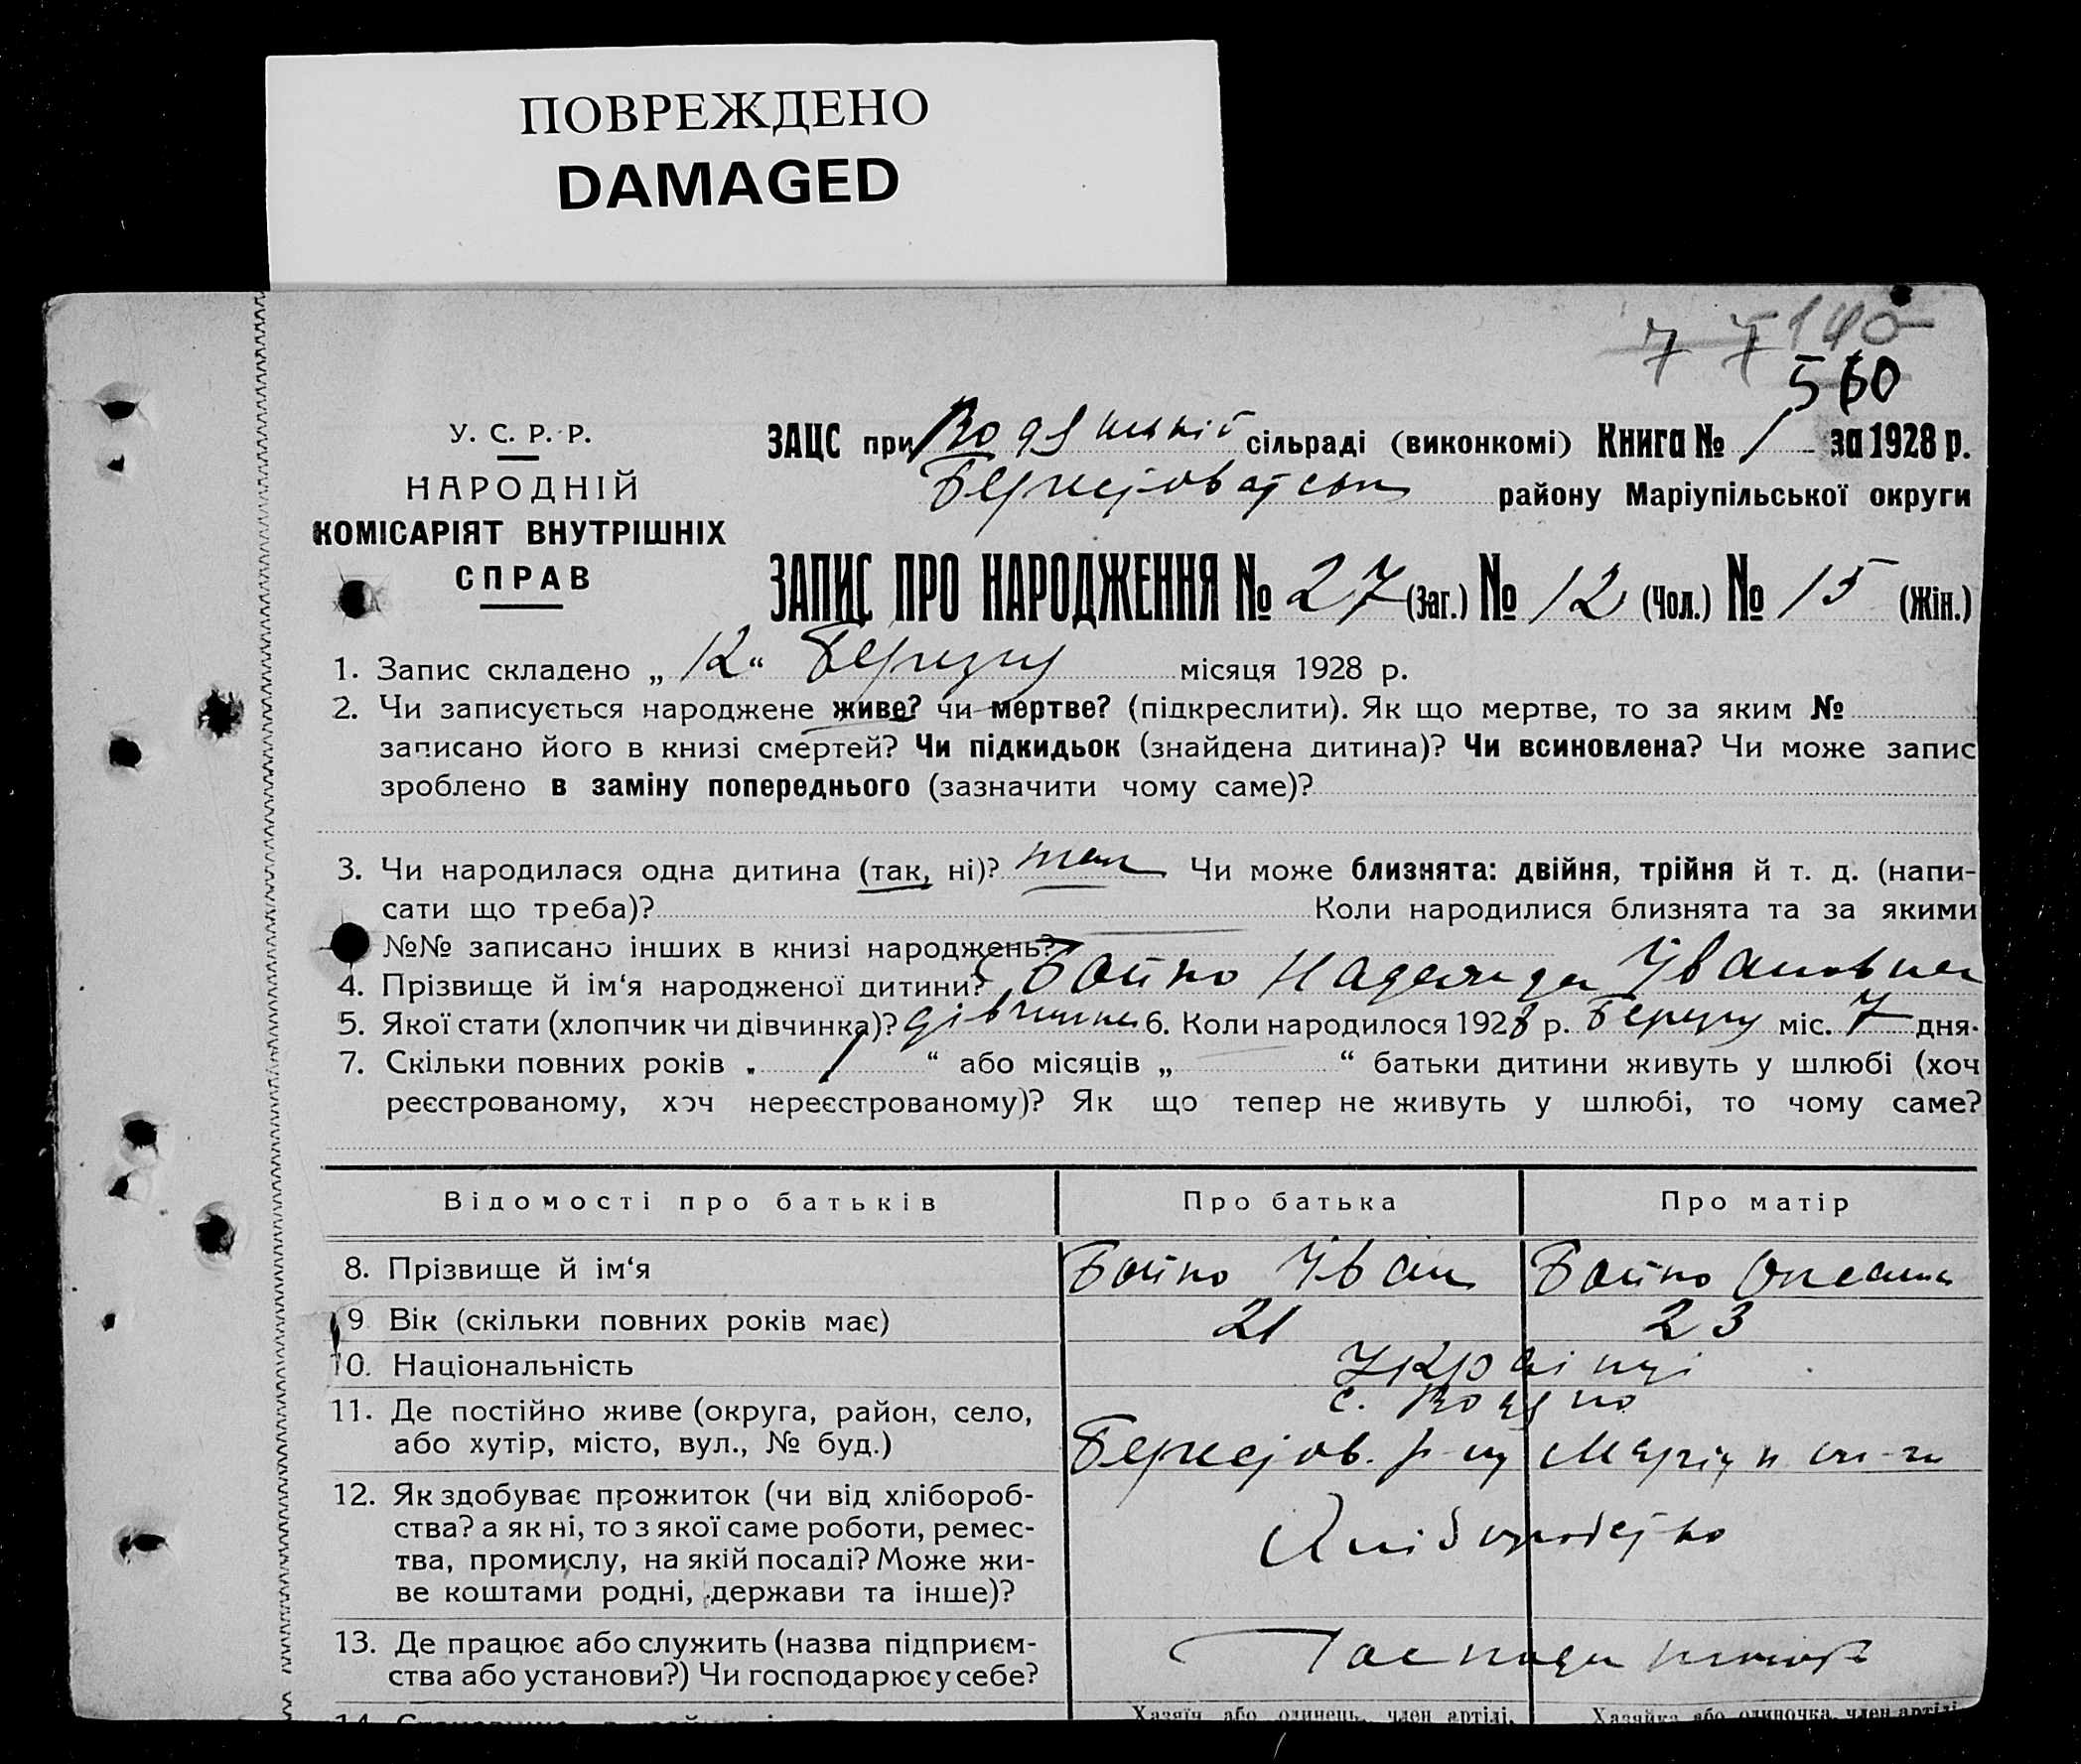 ПОВРЕЖДЕНО
DAMAGED
7 7 140
560
У. С. Р. Р.
НАРОДНІЙ
КОМІСАРІЯТ ВНУТРІШНІХ
СПРАВ
ЗАЦС при Водянській сільраді (виконкомі) Книга № 1 за 1928 р.
району Маріупільської округи
ЗАПИС ПРО НАРОДЖЕННЯ № 27 (Заг.) № 12 (Чол.) № 15 (Жін.)
1. Запис складено „ 12 “ Березня місяця 1928 р.
2. Чи записується народжене живе? чи мертве? (підкреслити). Як що мертве, то за яким №
записано його в книзі смертей? Чи підкидьок (знайдена дитина)? Чи всиновлена? Чи може запис
зроблено в заміну попереднього (зазначити чому саме)?
3. Чи народилася одна дитина (так, ні)? так Чи може близнята: двійня, трійня й т. д. (напи-
сати що треба)? Коли народилися близнята та за якими
№№ записано інших в книзі народжень?
4. Прізвище й ім‘я народженої дитини? Бойко Надежда Івановна
5. Якої стати (хлопчик чи дівчинка)? дівчинка 6. Коли народилося 1928 р. Березня міс. 7 дня.
7. Скільки повних років „ 1 “ або місяців „ “ батьки дитини живуть у шлюбі (хоч
реєстрованому, хоч нереєстрованому)? Як що тепер не живуть у шлюбі, то чому саме?
Відомості про батьків Про батька Про матір
8. Прізвище й ім‘я Бойко Іван Бойко Оксана
9. Вік (скільки повних років має) 21 23
10. Національність Українці
11. Де постійно живе (округа, район, село, с. Водяно
або хутір, місто, вул., № буд.)
12. Як здобуває прожиток (чи від хлібороб-
ства? а як ні, то з якої саме роботи, ремес-
тва, промислу, на якій посаді? Може жи-
ве коштами родні, держави та інше)?
13. Де працює або служить (назва підприєм-
ства або установи?) Чи господарює у себе?
Хазяїн або одинець, член артілі, Хазяйка або одиночка, член артілі